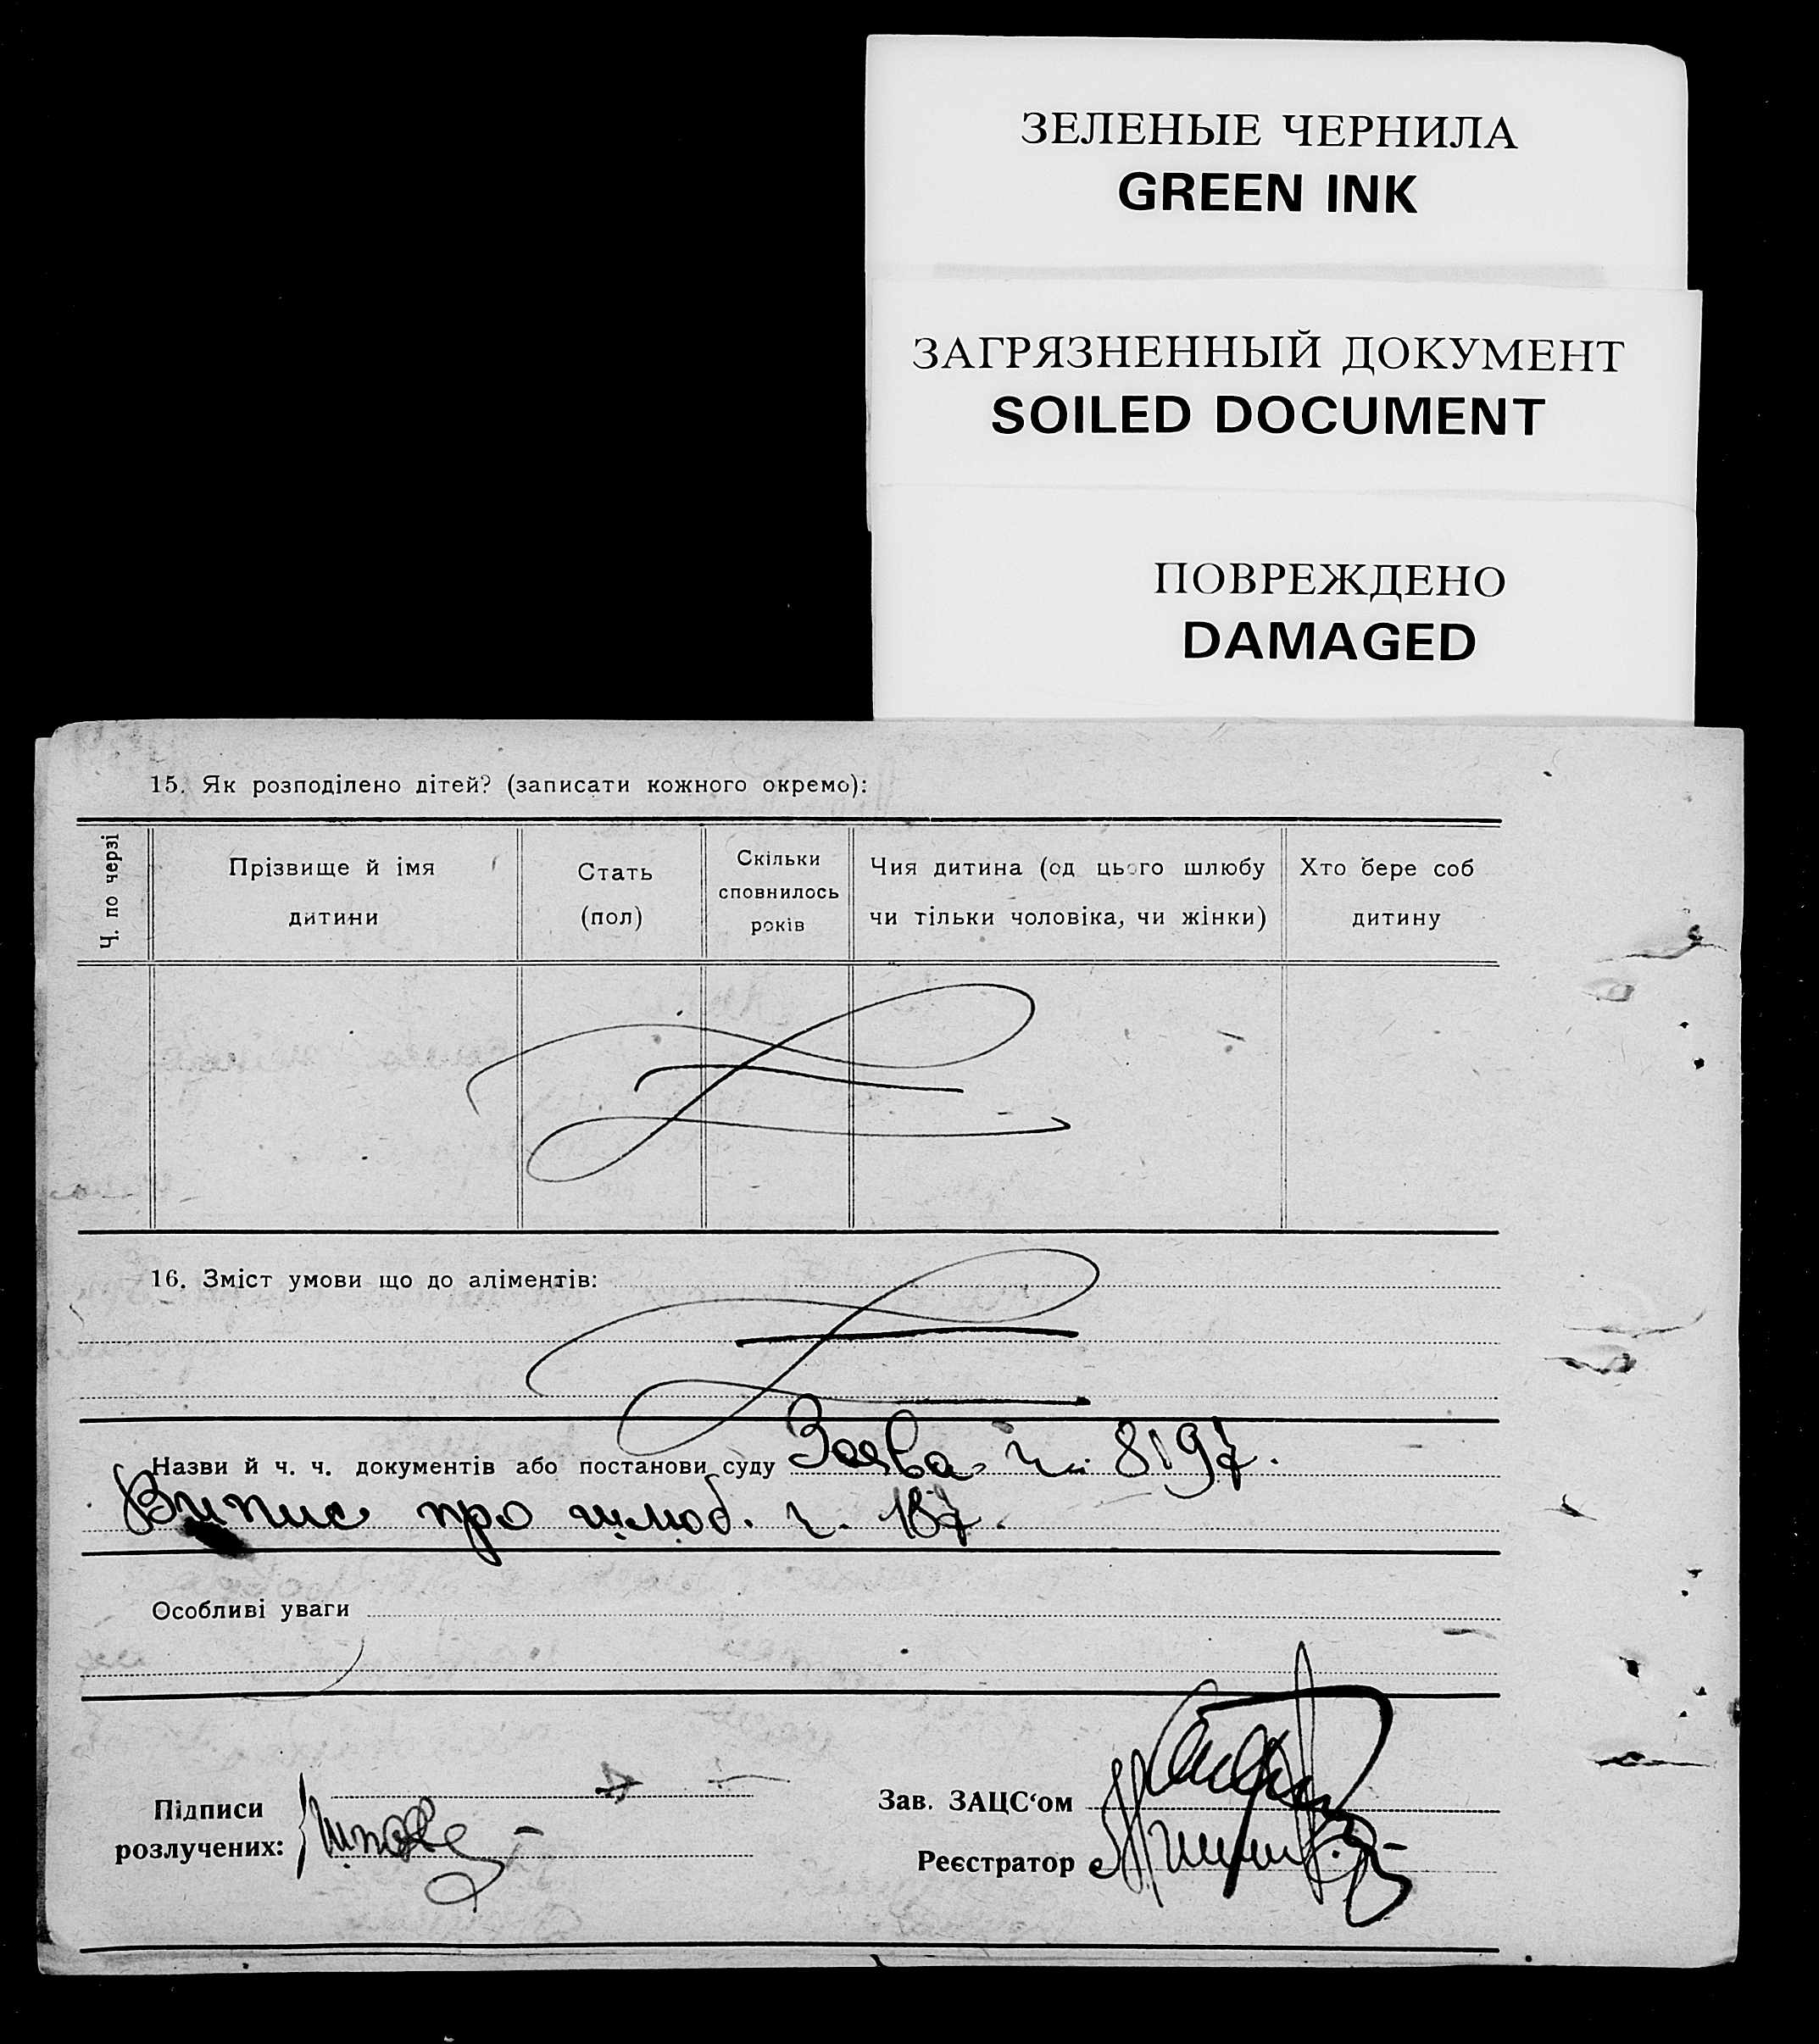 ЗЕЛЕНЫЕ ЧЕРНИЛА
GREEN INK
ЗАГРЯЗНЕННЫЙ ДОКУМЕНТ
SOILED DOCUMENT
ПОВРЕЖДЕНО
DAMAGED
15. Як розподілено дітей? (записати кожного окремо):
Ч. по черзі
Прізвище й імя
дитини
Стать
(пол)
Скільки
сповнилось
років
Чия дитина (од цього шлюбу
чи тільки чоловіка, чи жінки)
Хто бере соб
дитину
16. Зміст умови що до аліментів:
Назви й ч. ч. документів або постанови суду Заява ч. 8197.
Випис про шлюб. ч. 187.
Особливі уваги
Підписи
розлучених:
Зав. ЗАЦС‘ом
Реєстратор